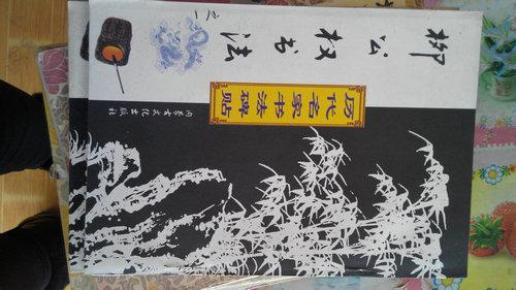 柳公权书法
之一
历代名家书法碑贴
内蒙古文化出版社